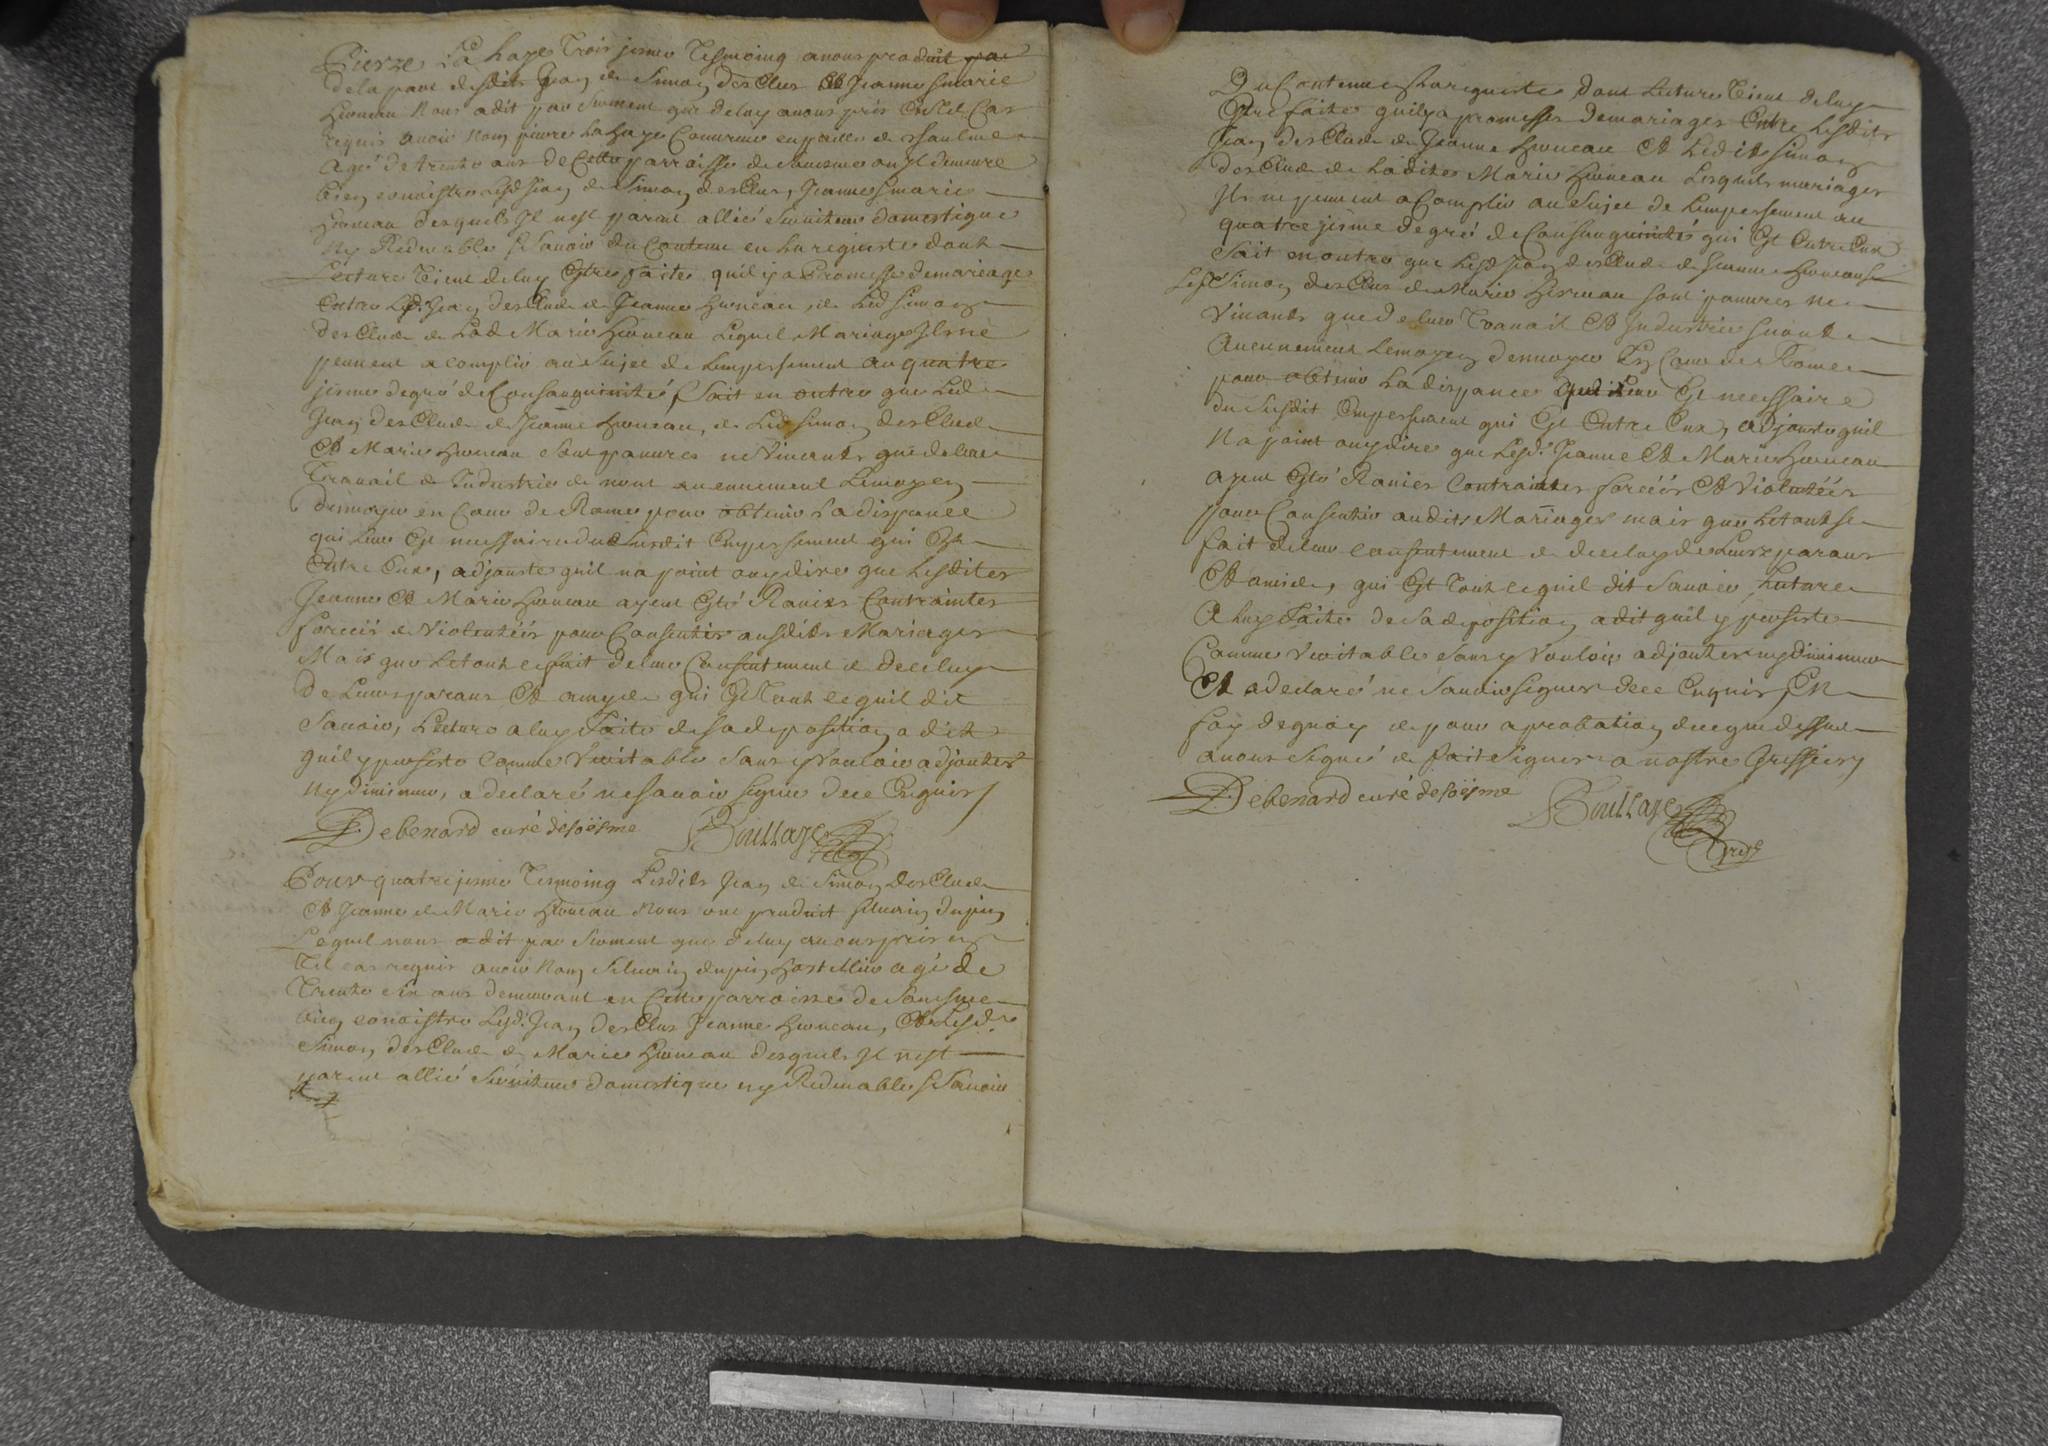 Pierre La haye Troisjesme Tesmoing a nous produit par
de la part desdits Jean & Simon desClus Et Jeanne & marie
Huneau Nous a dit par serment que de luy avons pris En tel Cas
requis avoir nom pierre La haye Couvreur en paille de
agé de trente ans de Cette parroisse de ou Il demeure
bien connoistre Lesd Jean & Simon desClus, Jeanne & marie
Huneau desquels Il n'est parent allié Serviteur domestique
ny Redevable & Savoir du Contenu en La requiste dont
Lecture Vient de luy Estre faite quil y a Promesse de mariage
Entre Led. Jean desClude & Jeanne Huneau, & Led Simon
desClude & Lad Marie Huneau Lequel Mariage Ils ne
peuvent acomplir au Sujet de Lempessement au quatre
jesme degré de Consanguinité, Sait en outre que Led
Jean desClude & Jeanne Huneau, & Led Simon desClude
Et Marie Huneau Sont pauvres ne Vivants que de leur
Travail & Industrie & nont aucunement Lemoyen
denvoyer en Cour de Rome pour obtenir La dispance
qui Leur Est nessaire du Susdit Empessement qui Est
Entre Eux, adjouste quil na point ouy dire que Lesdites
Jeanne Et Marie Huneau ayent Esté Ravies Contraintes
forcéés & Violentéés pour Consentir ausdits Mariages
Mais que Le tout ce fait de leur Consentement & de celuy
De Leurs parans Et amys & qui Est Tout ce quil dit
Savoir, Lecture a luy Faite de sa deposition a dit
quil y persiste Comme Veritable Sans y Vouloir adjouter
ny diminuer, a declaré ne Savoir signer de ce Enquis /
Debenard curé desoësme Boullaye
Pour quatrejesme Tesmoing Lesdits Jean & Simon desClude
Et Jeanne & Marie Huneau Nous ont produit Silvain dupin
Lequel nous a dit par Serment que de luy avons pris en
Tel cas requis avoir Nom Silvain dupin hostellier agé de
Trente Six ans demeurant en Cette parroisse de
bien conoistre Lesd. Jean desClus Jeanne Huneau, Et Lesd.
Simon desClude & Marie Huneau desquels Il nest
parent allié Serviteur domestique ny Redevable & Savoir
Du Contenu en La requiste dont Lecture Vient de luy
Estre faite quil y a promesse de mariages Entre Lesdits
Jean desClude & Jeanne Huneau Et Ledit Simon
desClude & Ladite Marie Huneau Lesquels mariages
Ils ne peuvent aComplir au Sujet de Lempessement au
quatrejesme degré de Consanguinité qui Est Entre Eux
Sait en outre que Lesd Jean desClude & Jeanne Huneau &
Lesd Simon desClus & Marie Huneau sont pauvres ne
Vivants que de leur Travail Et Industrie & nont
Aucunement Lemoyen denvoyer En Cour de Rome
pour obtenir La dispance qui Leur Est nessaire
du Susdit Empessement qui Est Entre Eux, adjouste quil
Na point ouy dire que Lesd. Jeanne Et Marie Huneau
ayent Esté Ravies Contraintes forcéés Et Violentéés
pour Consentir audits Mariages mais que Le tout se
fait de leur consentement & de celuy de Leurs parans
Et amis &, qui Est Tout ce quil dit Savoir, Lecture
A luy Faite de Sa deposition a dit quil y persiste
Comme Veritable Sans y Vouloir adjouter ny diminuer
Et a declaré ne Savoir Signer de ce Enquis, En
foy de quoy & pour aprobation de ce que dessus
avons Signé & fait Signer a nostre Greffier /
Debenard curé desoësme Boullaye